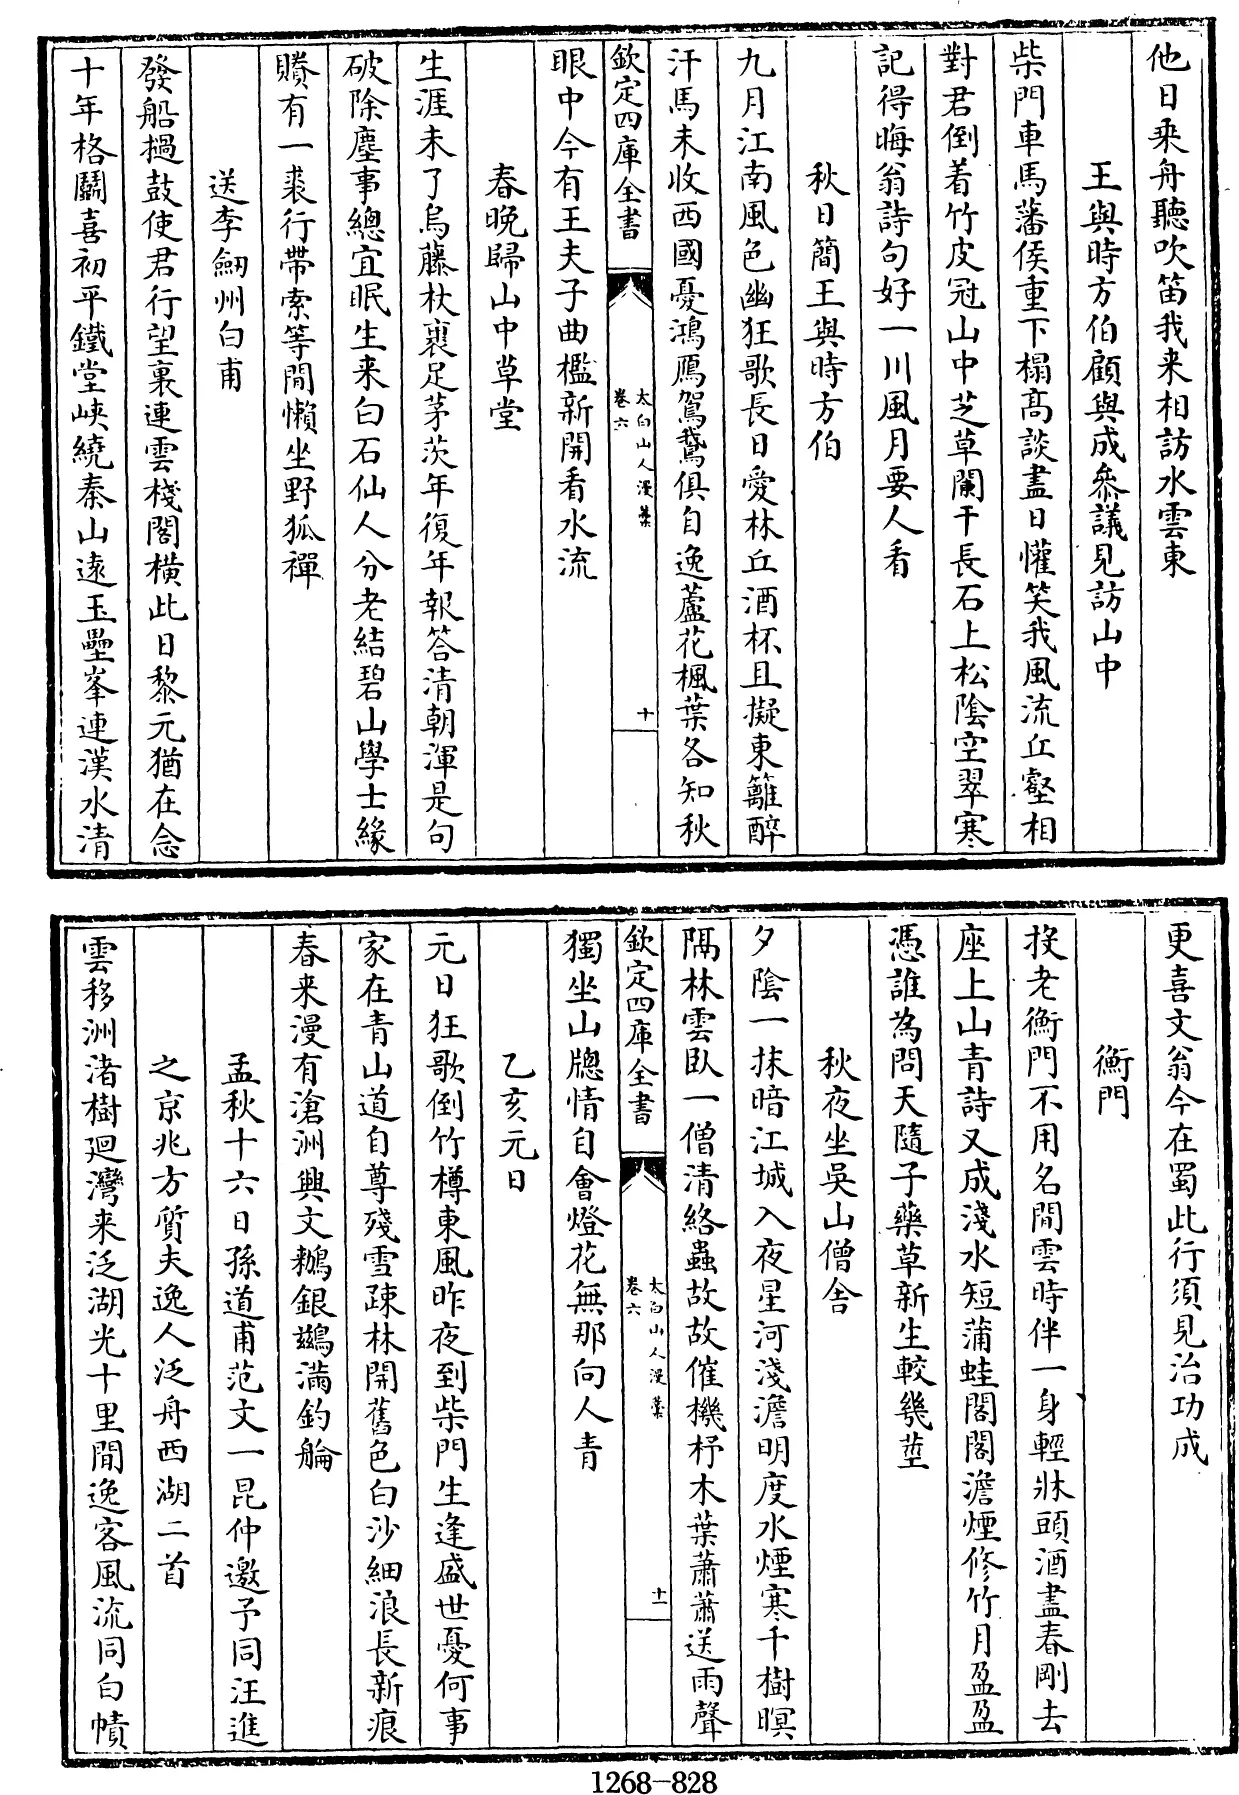 他日乘舟聽吹笛我来相訪水雲東
王與時方伯顧與成叅議見訪山中
柴門車馬藩侯重下榻髙談盡日懽笑我風流丘壑相
對君倒着竹皮冠山中芝草闌干長石上松陰空翠寒
記得晦翁詩句好一川風月要人看
秋日簡王與時方伯
九月江南風色幽狂歌長日愛林丘酒杯且擬東籬醉
汗馬未收西國憂鴻鴈鴐鵞俱自逸蘆花楓葉各知秋
欽定四庫全書
太白山人漫藁
卷六
十
眼中今有王夫子曲檻新開看水流
春晚歸山中草堂
生涯未了烏藤杖裹足茅茨年復年報答清朝渾是句
破除塵事總宜眠生来白石仙人分老結碧山學士緣
賸有一裘行帶索等閒懶坐野狐禪
送李劒州白甫
發船撾鼓使君行望裏連雲棧閣橫此日黎元猶在念
十年格鬬喜初平鐵堂峽繞秦山遠玉壘峯連漢水清
更喜文翁今在蜀此行須見治功成
衡門
投老衡門不用名閒雲時伴一身輕牀頭酒盡春剛去
座上山青詩又成淺水短蒲蛙閣閣澹煙修竹月盈盈
憑誰為問天隨子藥草新生較幾莖
秋夜坐吳山僧舎
夕陰一抹暗江城入夜星河淺澹明度水煙寒千樹暝
隔林雲臥一僧清絡蟲故故催機杼木葉蕭蕭送雨聲
欽定四庫全書
太白山人漫藁
卷六
十一
獨坐山牕情自會燈花無那向人青
乙亥元日
元日狂歌倒竹樽東風昨夜到柴門生逢盛世憂何事
家在青山道自尊殘雪疎林開舊色白沙細浪長新痕
春来漫有滄洲興文鷁銀鷀滿釣艑
孟秋十六日孫道甫范文一昆仲邀予同汪進
之京兆方質夫逸人泛舟西湖二首
雲移洲渚樹廻灣来泛湖光十里閒逸客風流同白幘
1268-828